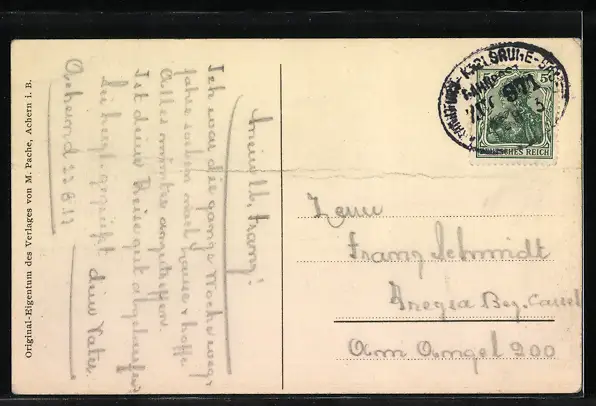 Original-Eigentum des Verlages von M. Pache, Achern i. B.
Mein lb. Franz!
Ich war die ganze Woche weg,
fahre soeben nach Hause & hoffe
Alles munter anzutreffen.
Ist deine Reise gut abgelaufen
Sei herzl. gegrüßt dein Vater
22.8.
KARLSRUHE
5
DEUTSCHES REICH
Herrn
Franz Schmidt
Bez. Cassel
Am Angel 200